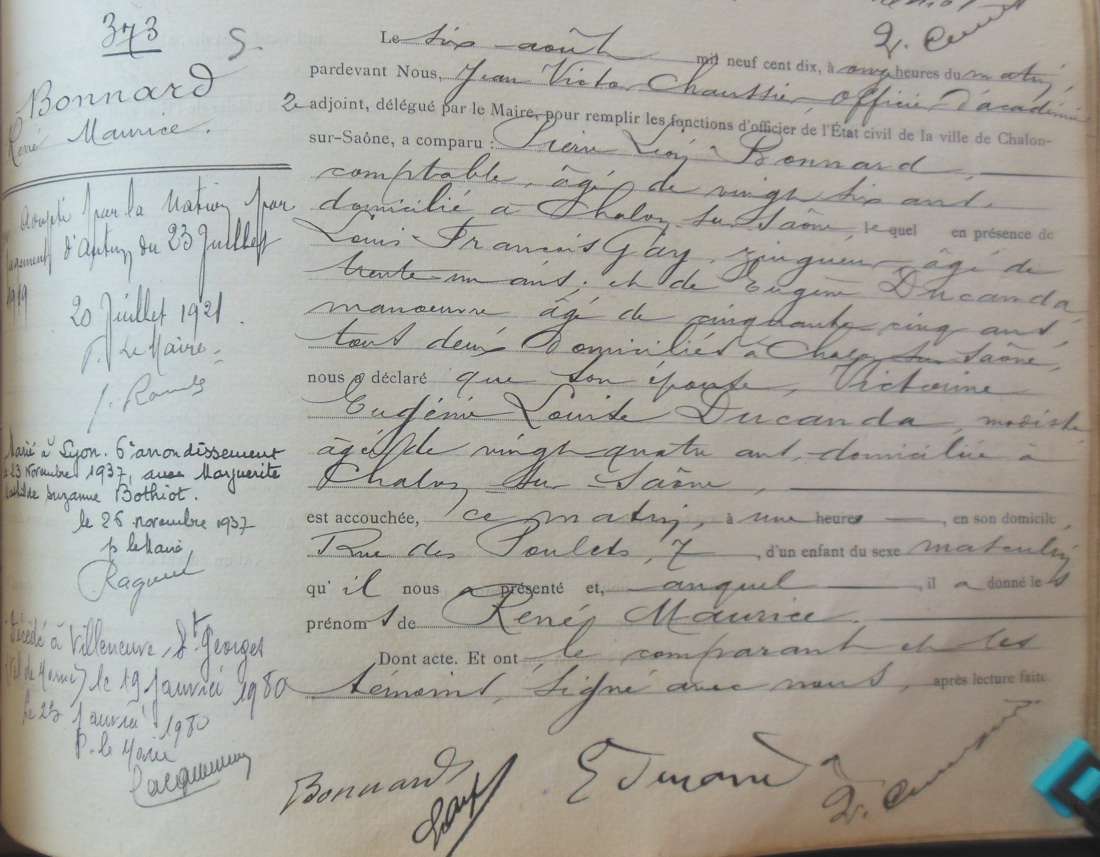 373
S.
Bonnard
René
Maurice.
Adopté par la Nation par
Jugement d'Autun du 23 Juillet
1919
20 Juillet 1921.
P. Le Maire.
Marié à Lyon. 6e arrondissement
le 23 Novembre 1937, avec Marguerite
Suzanne Bothiot.
le 26 novembre 1937
p le Maire,
Décédé à Villeneuve St Georges
(Val de Marne) le 19 Janvier 1980
le 23 Janvier 1980
P. le Maire
Le six août mil neuf cent dix, à onze heures du matin,
pardevant Nous, Jean Victor Chaussier officier d'académie
2e adjoint, délégué par le Maire, pour remplir les fonctions d'officier de l'État civil de la ville de Chalon-
sur-Saône, a comparu : Pierre Léon Bonnard,
comptable, âgé de vingt six ans,
domicilié à Chalon sur Saône, le quel en présence de
Louis François Gay, zingueur âgé de
trente-un ans, et de Eugène Ducanda,
manoeuvre âgé de cinquante cinq ans,
tous deux domiciliés à Chalon sur Saône,
nous a déclaré que son épouse, Victorine
Eugénie Louise Ducanda, modiste
âgée de vingt quatre ans, domiciliée à
Chalon sur Saône,
est accouchée, ce matin, à une heure, en son domicile,
Rue des Poulets, 7, d'un enfant du sexe masculin
qu'il nous a présenté et, auquel, il a donné les
prénoms de René Maurice.
Dont acte. Et ont le comparant et les
témoins, signé avec nous, après lecture faite.
Bonnard
Gay